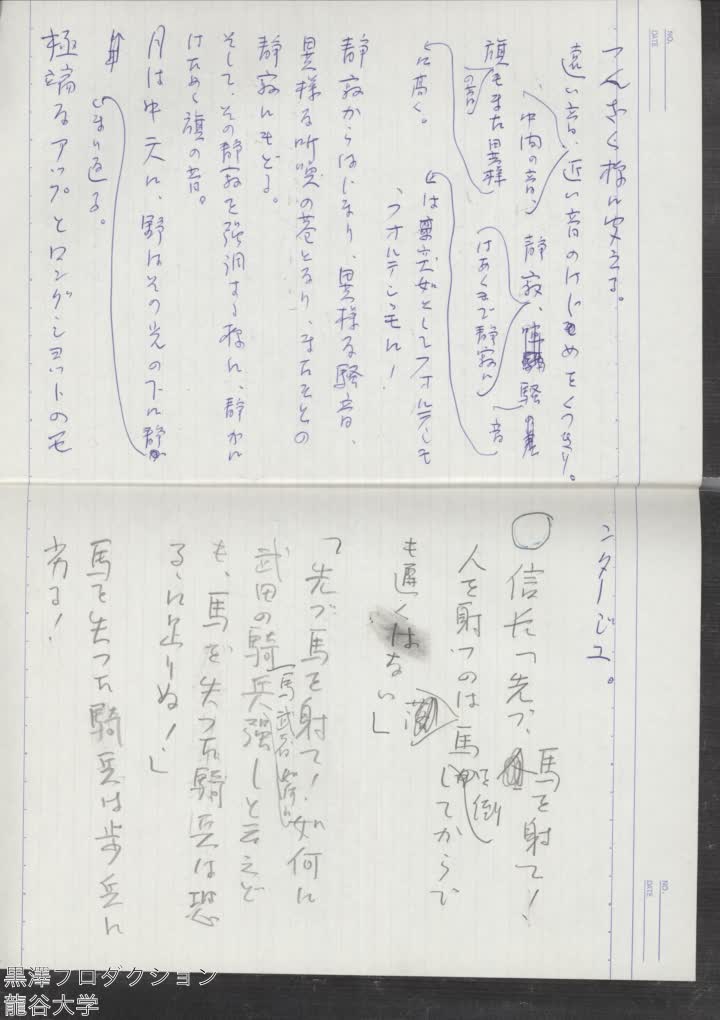 NO.
DATE
つんざく様に変える。
遠い音、近い音のはじめをくっきり。
、中間の音、
静寂、
騒
音
はあくまで静寂に
旗もまた異様
の音
に高く。
は
としてフォルテシモ
、フォルテシモに!
静寂からはじまり、異様な騒音、
異様な叫喚の巷となり、またもとの
静寂にもどる。
そして、その静寂を強調する様に、静かに
はためく旗の音。
月は中天に、野はその光の下に静
まり返る。
極端なアップとロングショットのモ
ンタージュ。
信長「先づ、馬を射て!
人を射つのは馬を倒してからで
も遅くはない」
「先づ馬を射て!如何に
武田の騎兵強しと言えど
も、馬を失つた騎兵は恐
るゝに足りぬ!」
馬を失つた騎兵は歩兵に
劣る!
NO.
DATE
黒澤プロダクション
龍谷大学